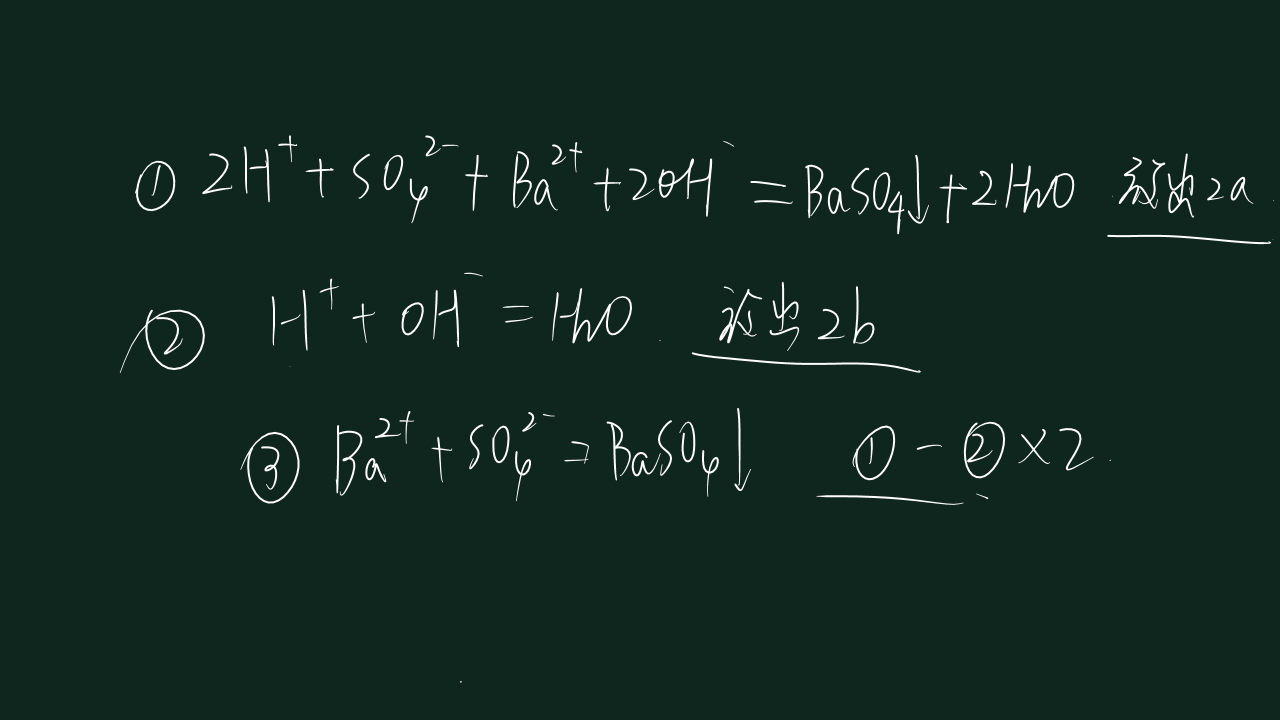 ① 2H⁺ + SO₄²⁻ + Ba²⁺ + 2OH⁻ = BaSO₄↓ + 2H₂O 放出2a
② H⁺ + OH⁻ = H₂O 放出2b
③ Ba²⁺ + SO₄²⁻ = BaSO₄↓ ① - ② × 2